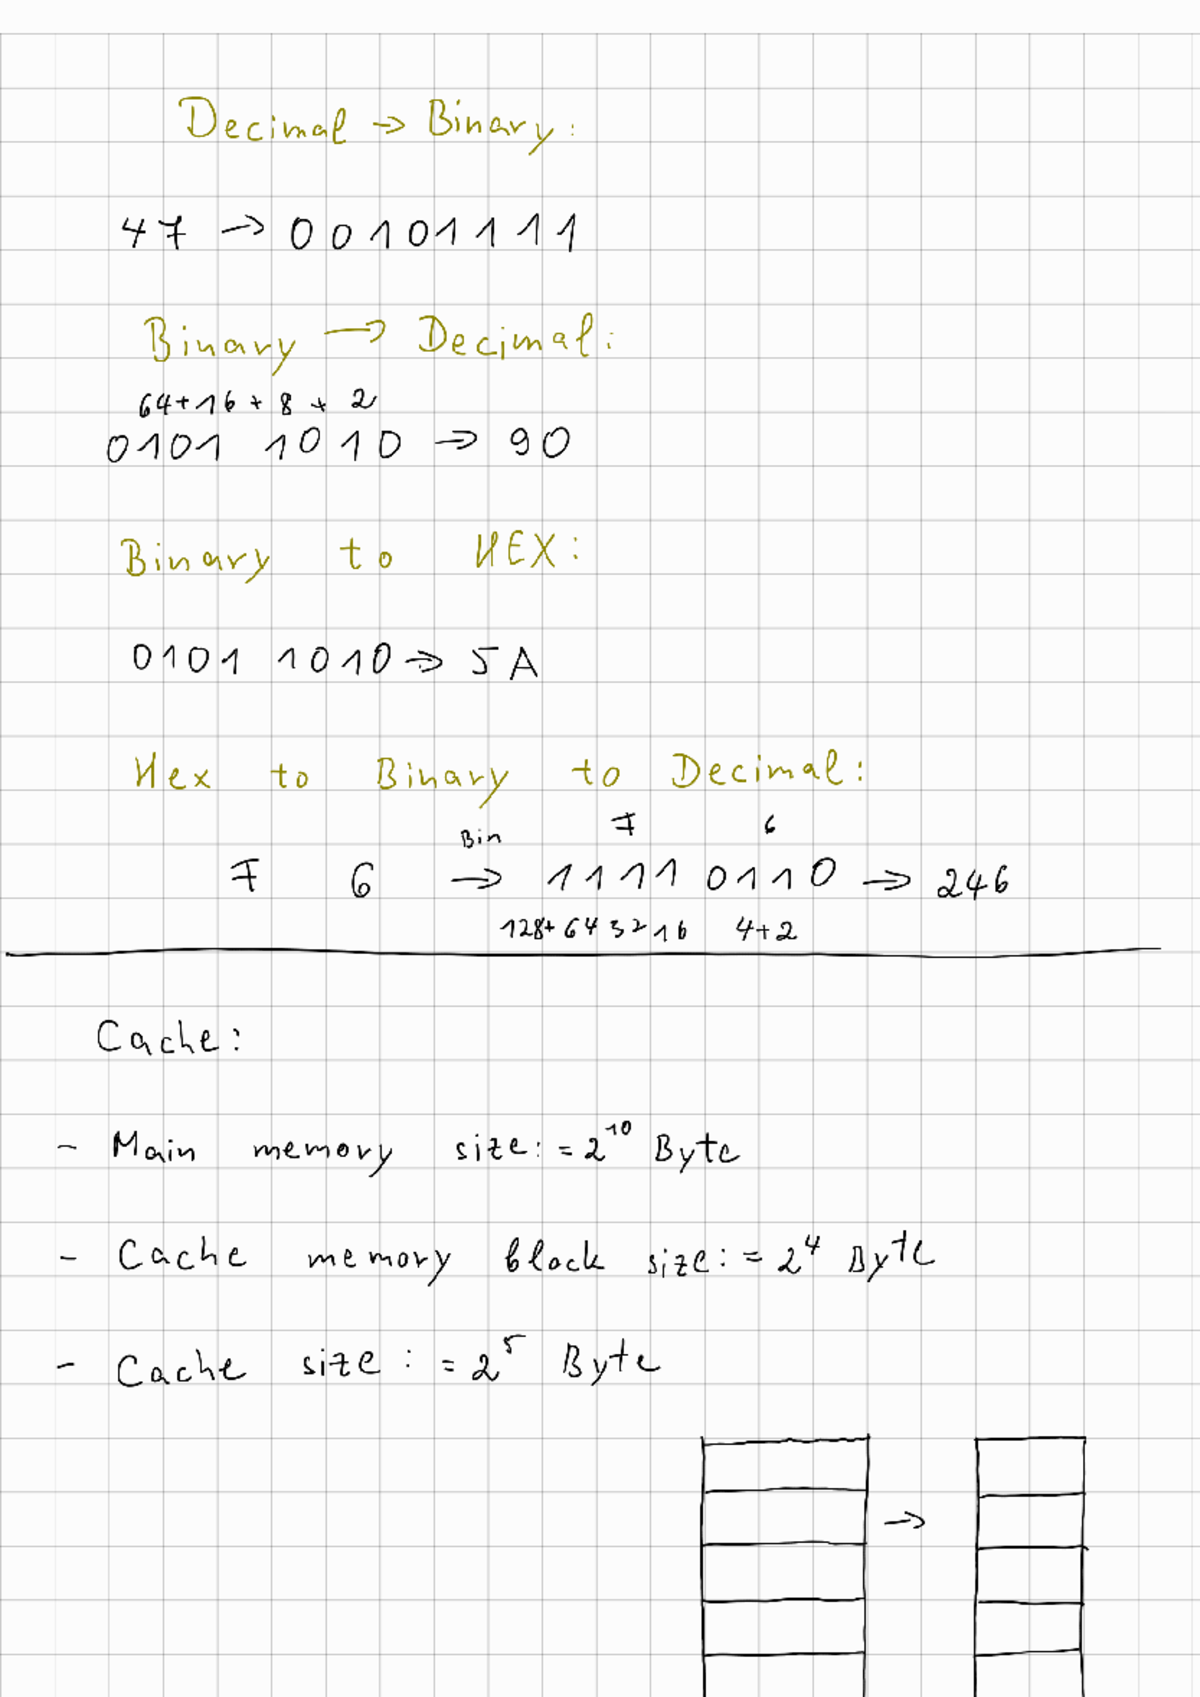 Decimal → Binary:
47 → 00101111
Binary → Decimal:
64+16+8+2
0101 1010 → 90
Binary to HEX:
0101 1010 → 5A
Hex to Binary to Decimal:
Bin F 6
F 6 → 1111 0110 → 246
128+64 32 16 4+2
Cache:
- Main memory size: = 2¹⁰ Byte
- Cache memory block size: = 2⁴ Byte
- Cache size: = 2⁵ Byte
→